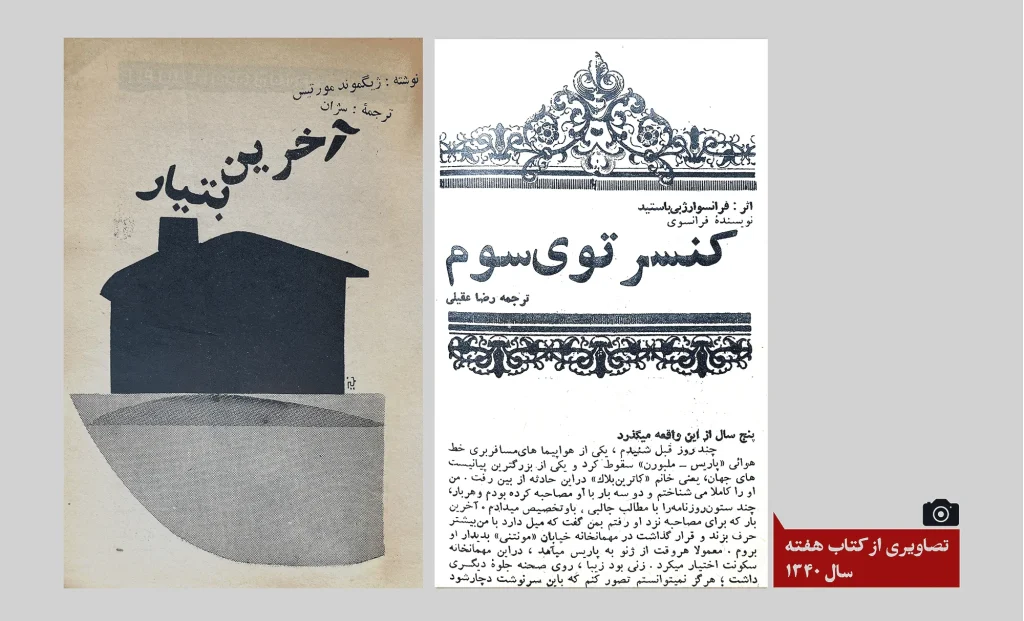 نوشته : ژیگموند مورتیس
ترجمهٔ : سژان
آخرین
بتیار
اثر : فرانسوارژیی‌باستید
نویسندهٔ فرانسوی
کنسر توی‌سوم
ترجمه رضا عقیلی
پنج سال از این واقعه میگذرد
چند روز قبل شنیدم ، یکی از هواپیما های‌مسافربری خط
هوائی «پاریس – ملبورن» سقوط کرد و یکی از بزرگترین پیانیست
های جهان، یعنی خانم «کاترین‌بلاك» دراین حادثه از بین رفت . من
او را کاملا می شناختم و دو سه بار با او مصاحبه کرده بودم وهربار،
چند ستون‌روزنامه‌را با مطالب جالبی ، باوتخصیص میدادم . آخرین
بار که برای مصاحبه نزد او رفتم بمن گفت که میل دارد با من‌بیشتر
حرف بزند و قرار گذاشت در مهمانخانه خیابان «مونتنی» بدیدار او
بروم . معمولا هروقت از ژنو به پاریس میآمد ، دراین مهمانخانه
سکونت اختیار میکرد . زنی بود زیبا ، روی صحنه جلوهٔ دیگری
داشت ؛ هرگز نمیتوانستم تصور کنم که باین سرنوشت دچارشود
تصاویری از کتاب هفته
سال ۱۳۴۰